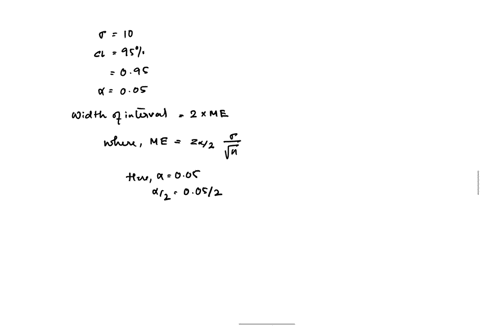 σ = 10
CL = 95%
= 0.95
α = 0.05
Width of interval = 2 × ME
where, ME = zα/2 σ/√n
Here, α = 0.05
α/2 = 0.05/2